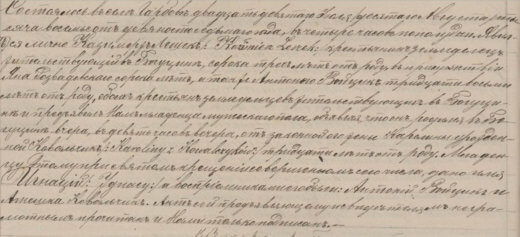 Состоялось въ селѣ Гарбовѣ двадцать девятаго Іюля /десятаго Августа/ тыся-
ча восемьсотъ девяносто седьмаго года, въ четыре часа по полудни. Явил-
ся лично Казимиръ крестьянинъ земледѣлецъ
жительствующій въ Богуцинѣ, сорока трехъ лѣтъ отъ роду въ присутствіи
Яна сорока лѣтъ, а также Антонія Войцика тридцати восьми
лѣтъ отъ роду, обоихъ крестьянъ земледѣльцевъ жительствующихъ въ Богуци-
нѣ и предъявилъ Намъ младенца мужескаго пола, объявляя что онъ родился въ Бо-
гуцинѣ вчера, въ девять часовъ вечера, отъ законной его жены Каролины урожден-
ной Ковальчикъ тридцати лѣтъ отъ роду. Младен-
цу этому при святомъ крещеніи совершенномъ сего числа, дано имя
Игнацій /Ignacy/ а воспріемниками его были: Антоній Войцикъ и
Агнешка Ковальчикъ. Актъ сей предъявляющему и свидѣтелямъ негра-
мотнымъ прочитанъ и Нами только подписанъ.—